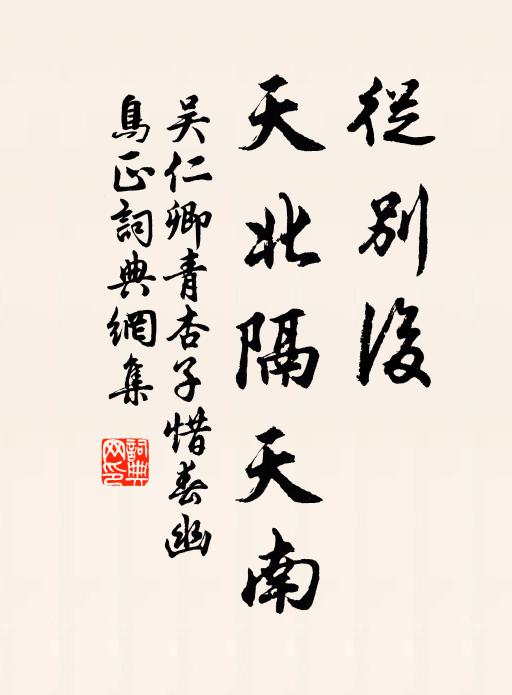 從別後
天北隔天南
吴仁卿青杏子惜春幽
鳥正詞典網集
詞典網印